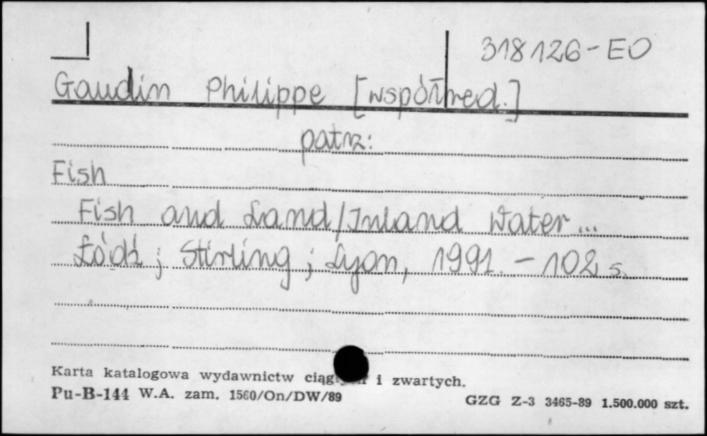 318126-EO
Gaudin Philippe [współred.]
patrz:
Fish
Fish and Land/Inland Water...
Łódź; Stirling; Lyon, 1991. - 102 s.
Karta katalogowa wydawnictw i zwartych.
Pu-B-144 W.A. zam. 1560/On/DW/89
GZG Z-3 3465-89 1.500.000 szt.